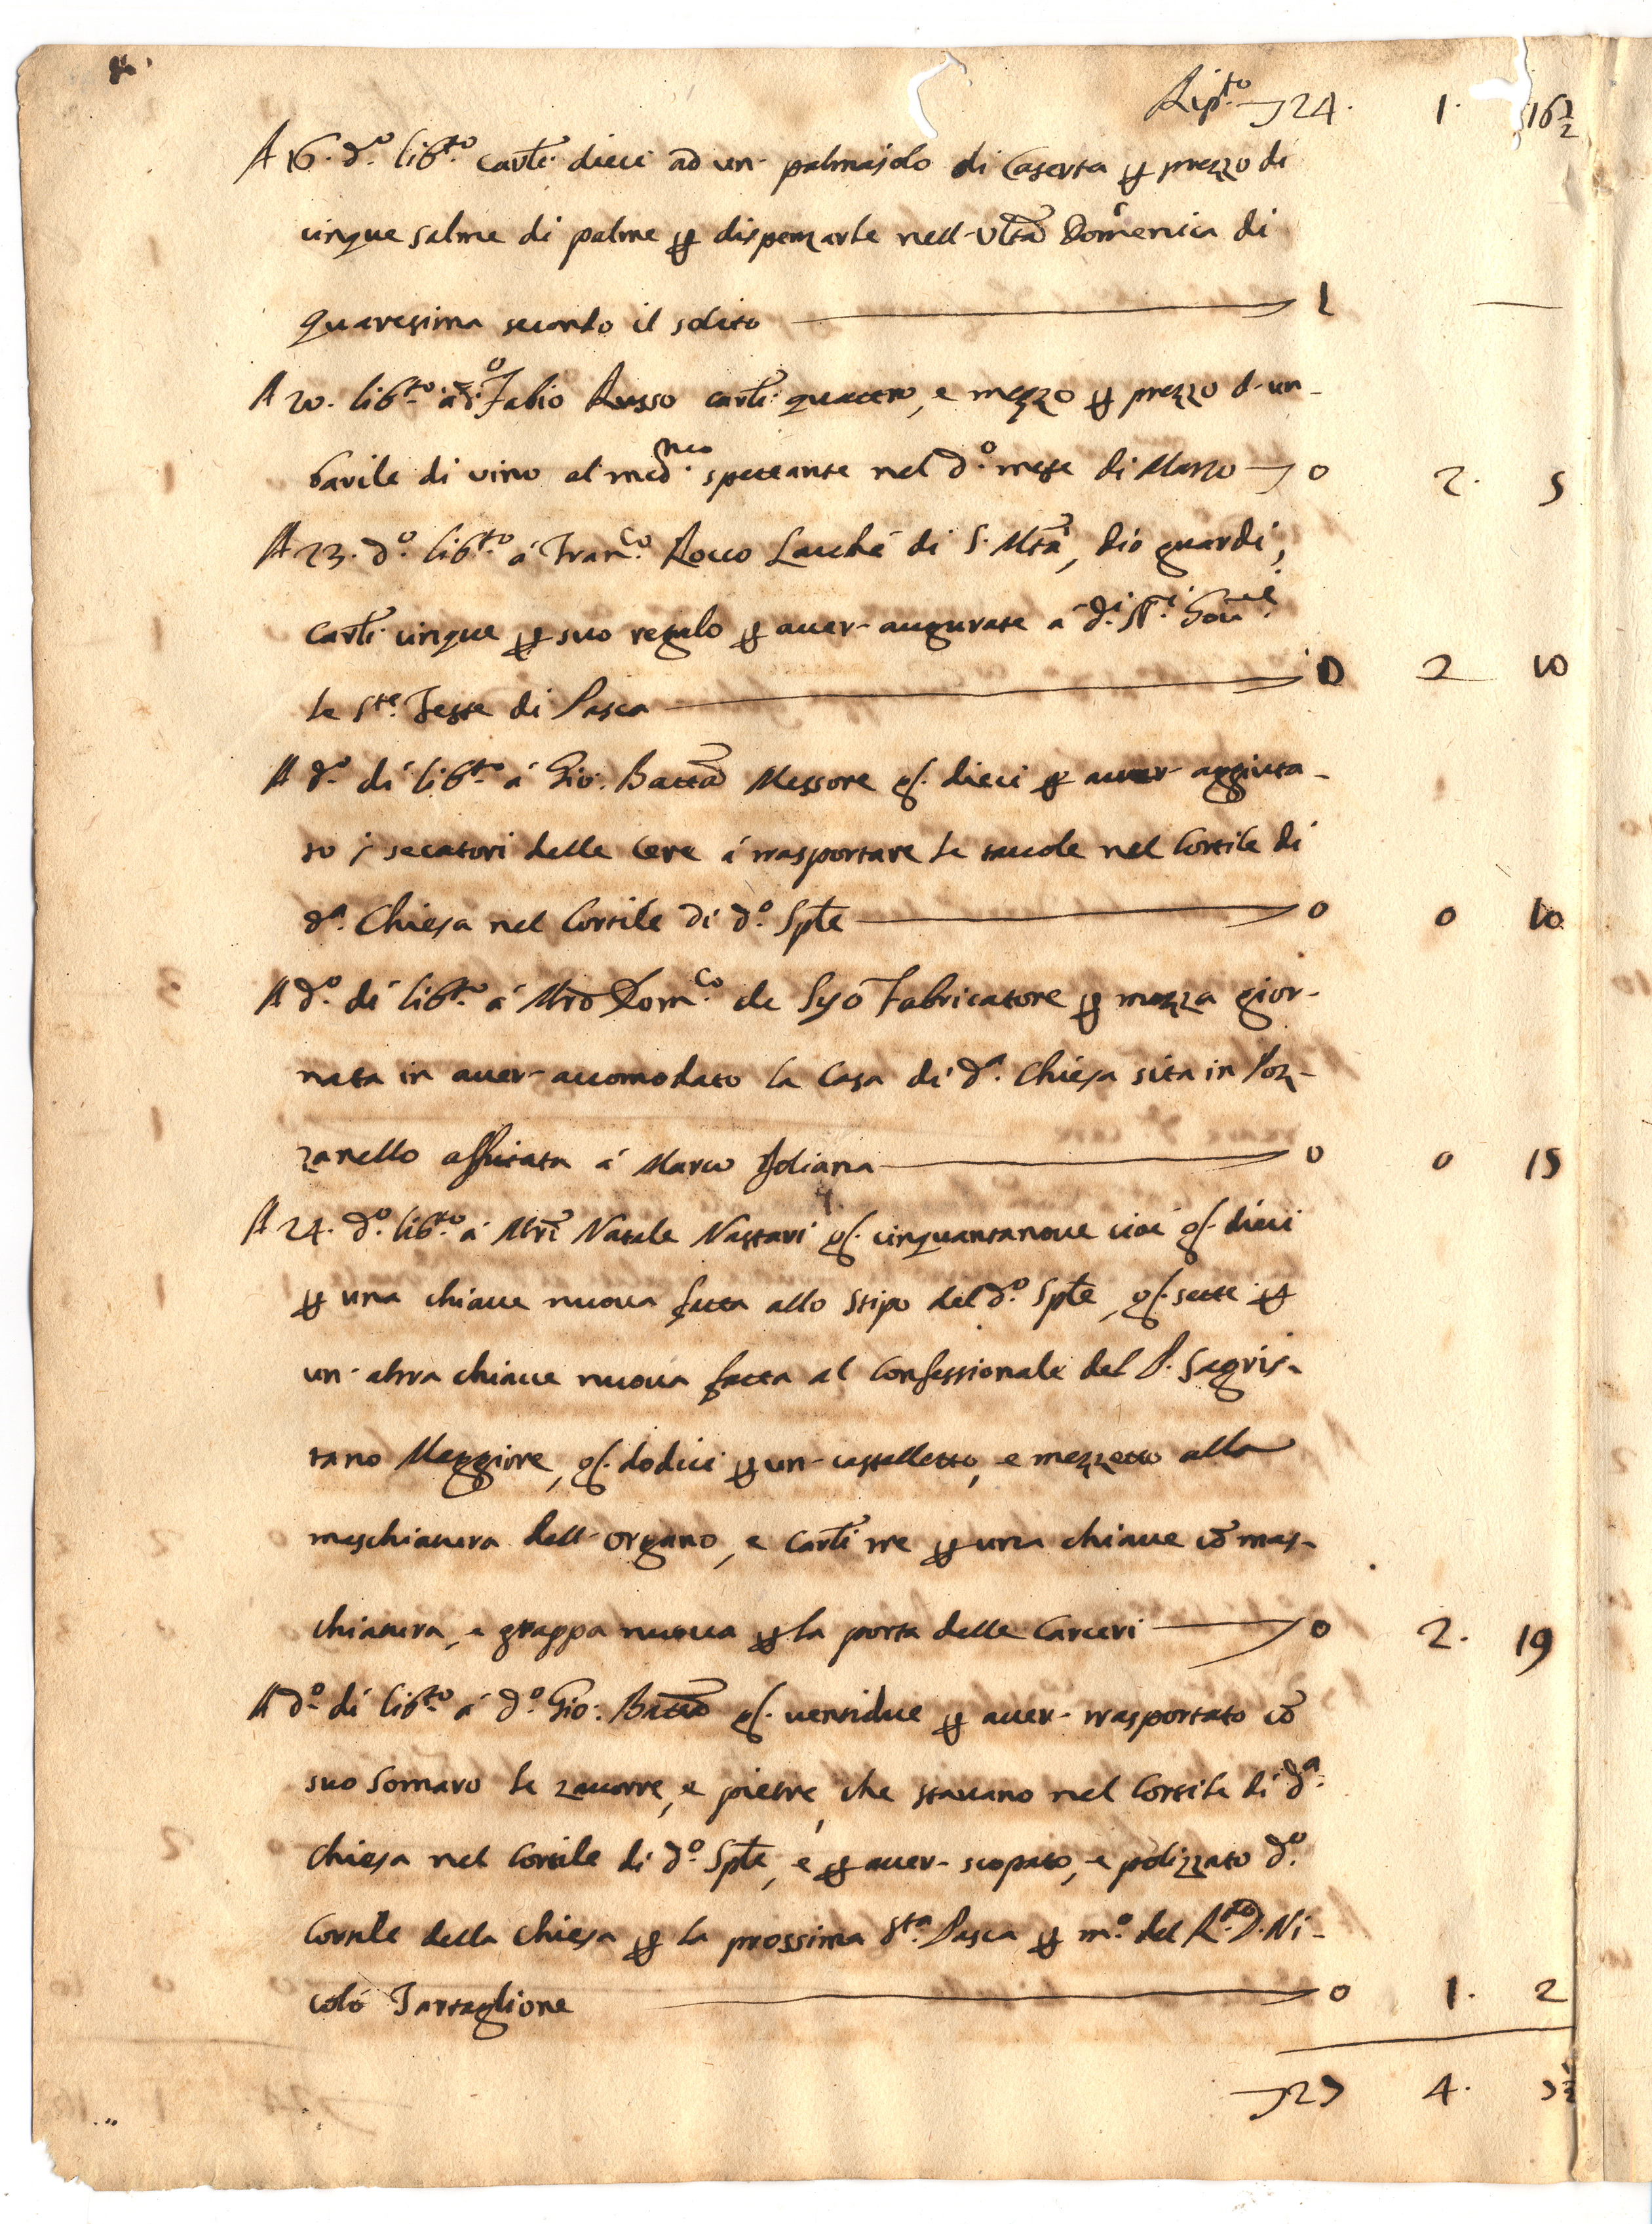 Rip.to 24. 1. 16½
A 16. d.o lib.to carli dieci ad un palmajolo di Caserta per prezzo di
cinque salme di palme per dispenzarle nell'Ulta Domenica di
quaresima secondo il solito 1 —
A 20. lib.to à d.o Fabio Russo carli quattro, e mezzo per prezzo d'un
barile di vino al med.mo spettante nel d.o mese di Marzo 0 2. 5
A 23. d.o lib.to á Fran.co Rocco Lacchè di S. Mtà, Dio guardi,
carli cinque per suo regalo per aver augurate á d.i SS.ri Gov.ri
le S.te Feste di Pasca 0 2 10
A d.o dí lib.to á Gio: Batta Messore g. dieci per auer aggiuta-
to i secatori delle Cere á trasportare le tauole nel Cortile di
d.a Chiesa nel Cortile di d.o Sple 0 0 10
A d.o dí lib.to á Mro Dom.co de Syo Fabricatore per mezza gior-
nata in auer accomodato la Casa di d.a Chiesa sita in Poz-
zanello affittata á Marco Joliana 0 0 15
A 24. d.o lib.to á Mri Natale Nastari g. cinquantanoue cioé g. dieci
per una chiaue nuoua fatta allo Stipo del d.o Sple, g. sette per
un'altra chiaue nuoua fatta al Confessionale del P. Sagris-
tano Maggiore, g. dodici per un castelletto, e mezzetto alla
maschiatura dell'organo, e carli tre per una chiaue cō mas-
chiatura, e grappa nuoua per la porta delle Carceri 0 2. 19
A d.o dí lib.to á d.o Gio: Batta g. uentidue per auer trasportato cō
suo Somaro le zauorre, e pietre, che stauano nel Cortile di d.a
Chiesa nel Cortile di d.o Sple, e per auer scopato, e polizzato d.o
Cortile della Chiesa per la prossima S.ta Pasca per m.o del R.do D. Ni-
coló Tartaglione 0 1. 2
27 4. 7½